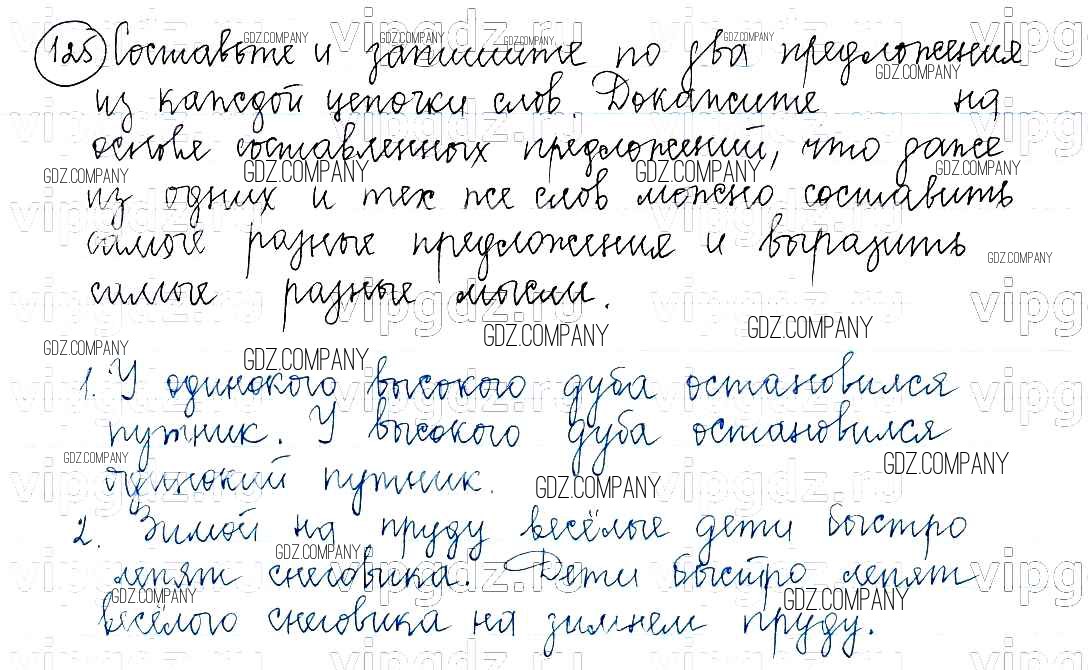 125 Составьте и запишите по два предложения
из каждой цепочки слов. Докажите на
основе составленных предложений, что даже
из одних и тех же слов можно составить
самые разные предложения и выразить
самые разные мысли.
1. У одинокого высокого дуба остановился
путник. У высокого дуба остановился
одинокий путник.
2. Зимой на пруду весёлые дети быстро
лепят снеговика. Дети быстро лепят
весёлого снеговика на зимнем пруду.